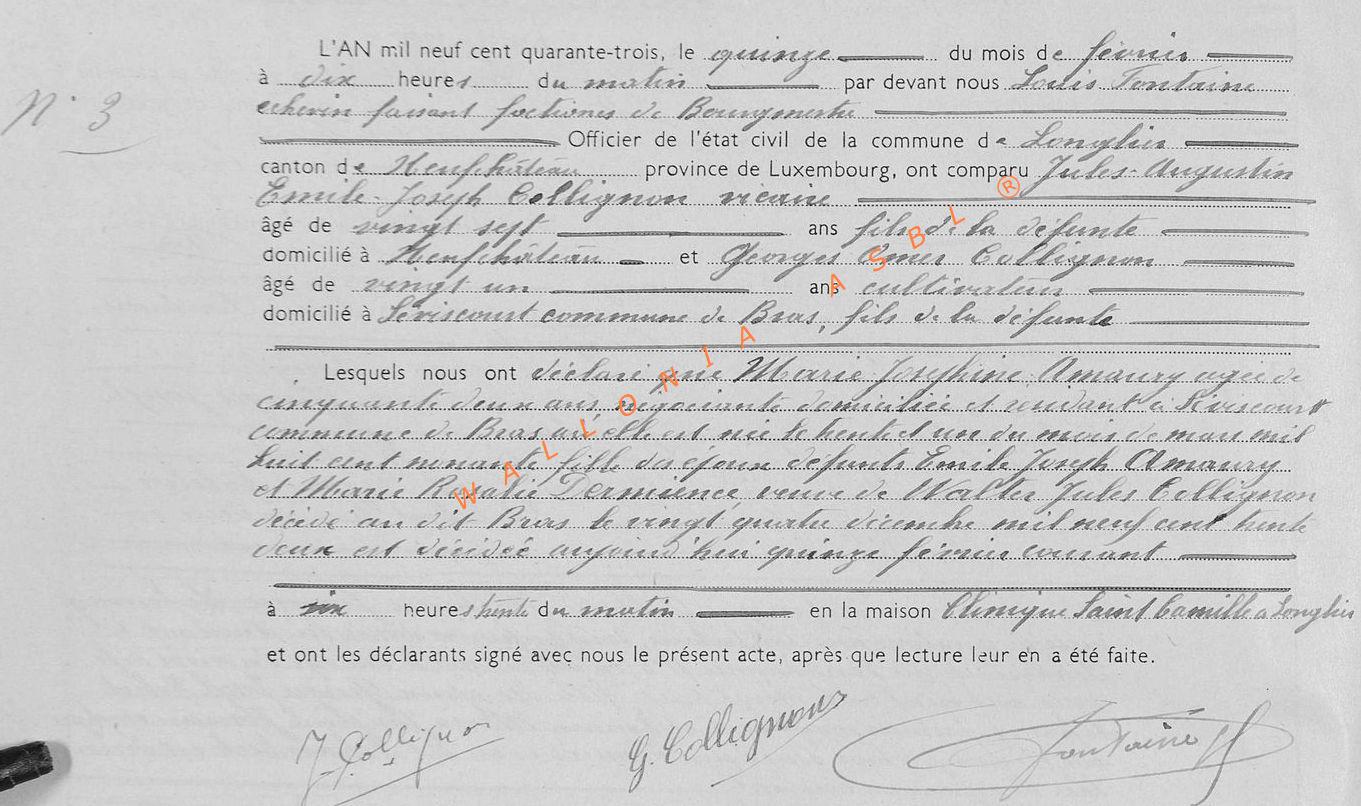 L'AN mil neuf cent quarante-trois, le quinze du mois de février
à dix heures du matin par devant nous Louis Fontaine
N° 3
echevin faisant foctiones de Bourgmestre
Officier de l'état civil de la commune de Longlier
canton de Neufchâteau province de Luxembourg, ont comparu Jules-Augustin
Emile-Joseph Collignon vicaire
âgé de vingt sept ans fils de la défunte
domicilié à Neufchâteau et Georges Omer Collignon
âgé de vingt un ans cultivateur
domicilié à Séviscourt commune de Bras, fils de la défunte
Lesquels nous ont déclaré que Marie Joséphine Amaury agée de
cinquante deux ans, négociante domiciliée et rendant à Séviscourt
commune de Bras où elle est née le trente et un du mois de mars mil
huit cent nonante, fille des époux défunts Emile Joseph Amaury
et Marie Rosalie Dermience veuve de Walter Jules Collignon
décédé au dit Bras le vingt quatre décembre mil neuf cent trente
deux est décédée aujourd'hui quinze février courant
à heures trente du matin en la maison Clinique Saint Camille a Longlier
et ont les déclarants signé avec nous le présent acte, après que lecture leur en a été faite.
J Collignon G. Collignon Fontaine
WALLONIA ASBL ®